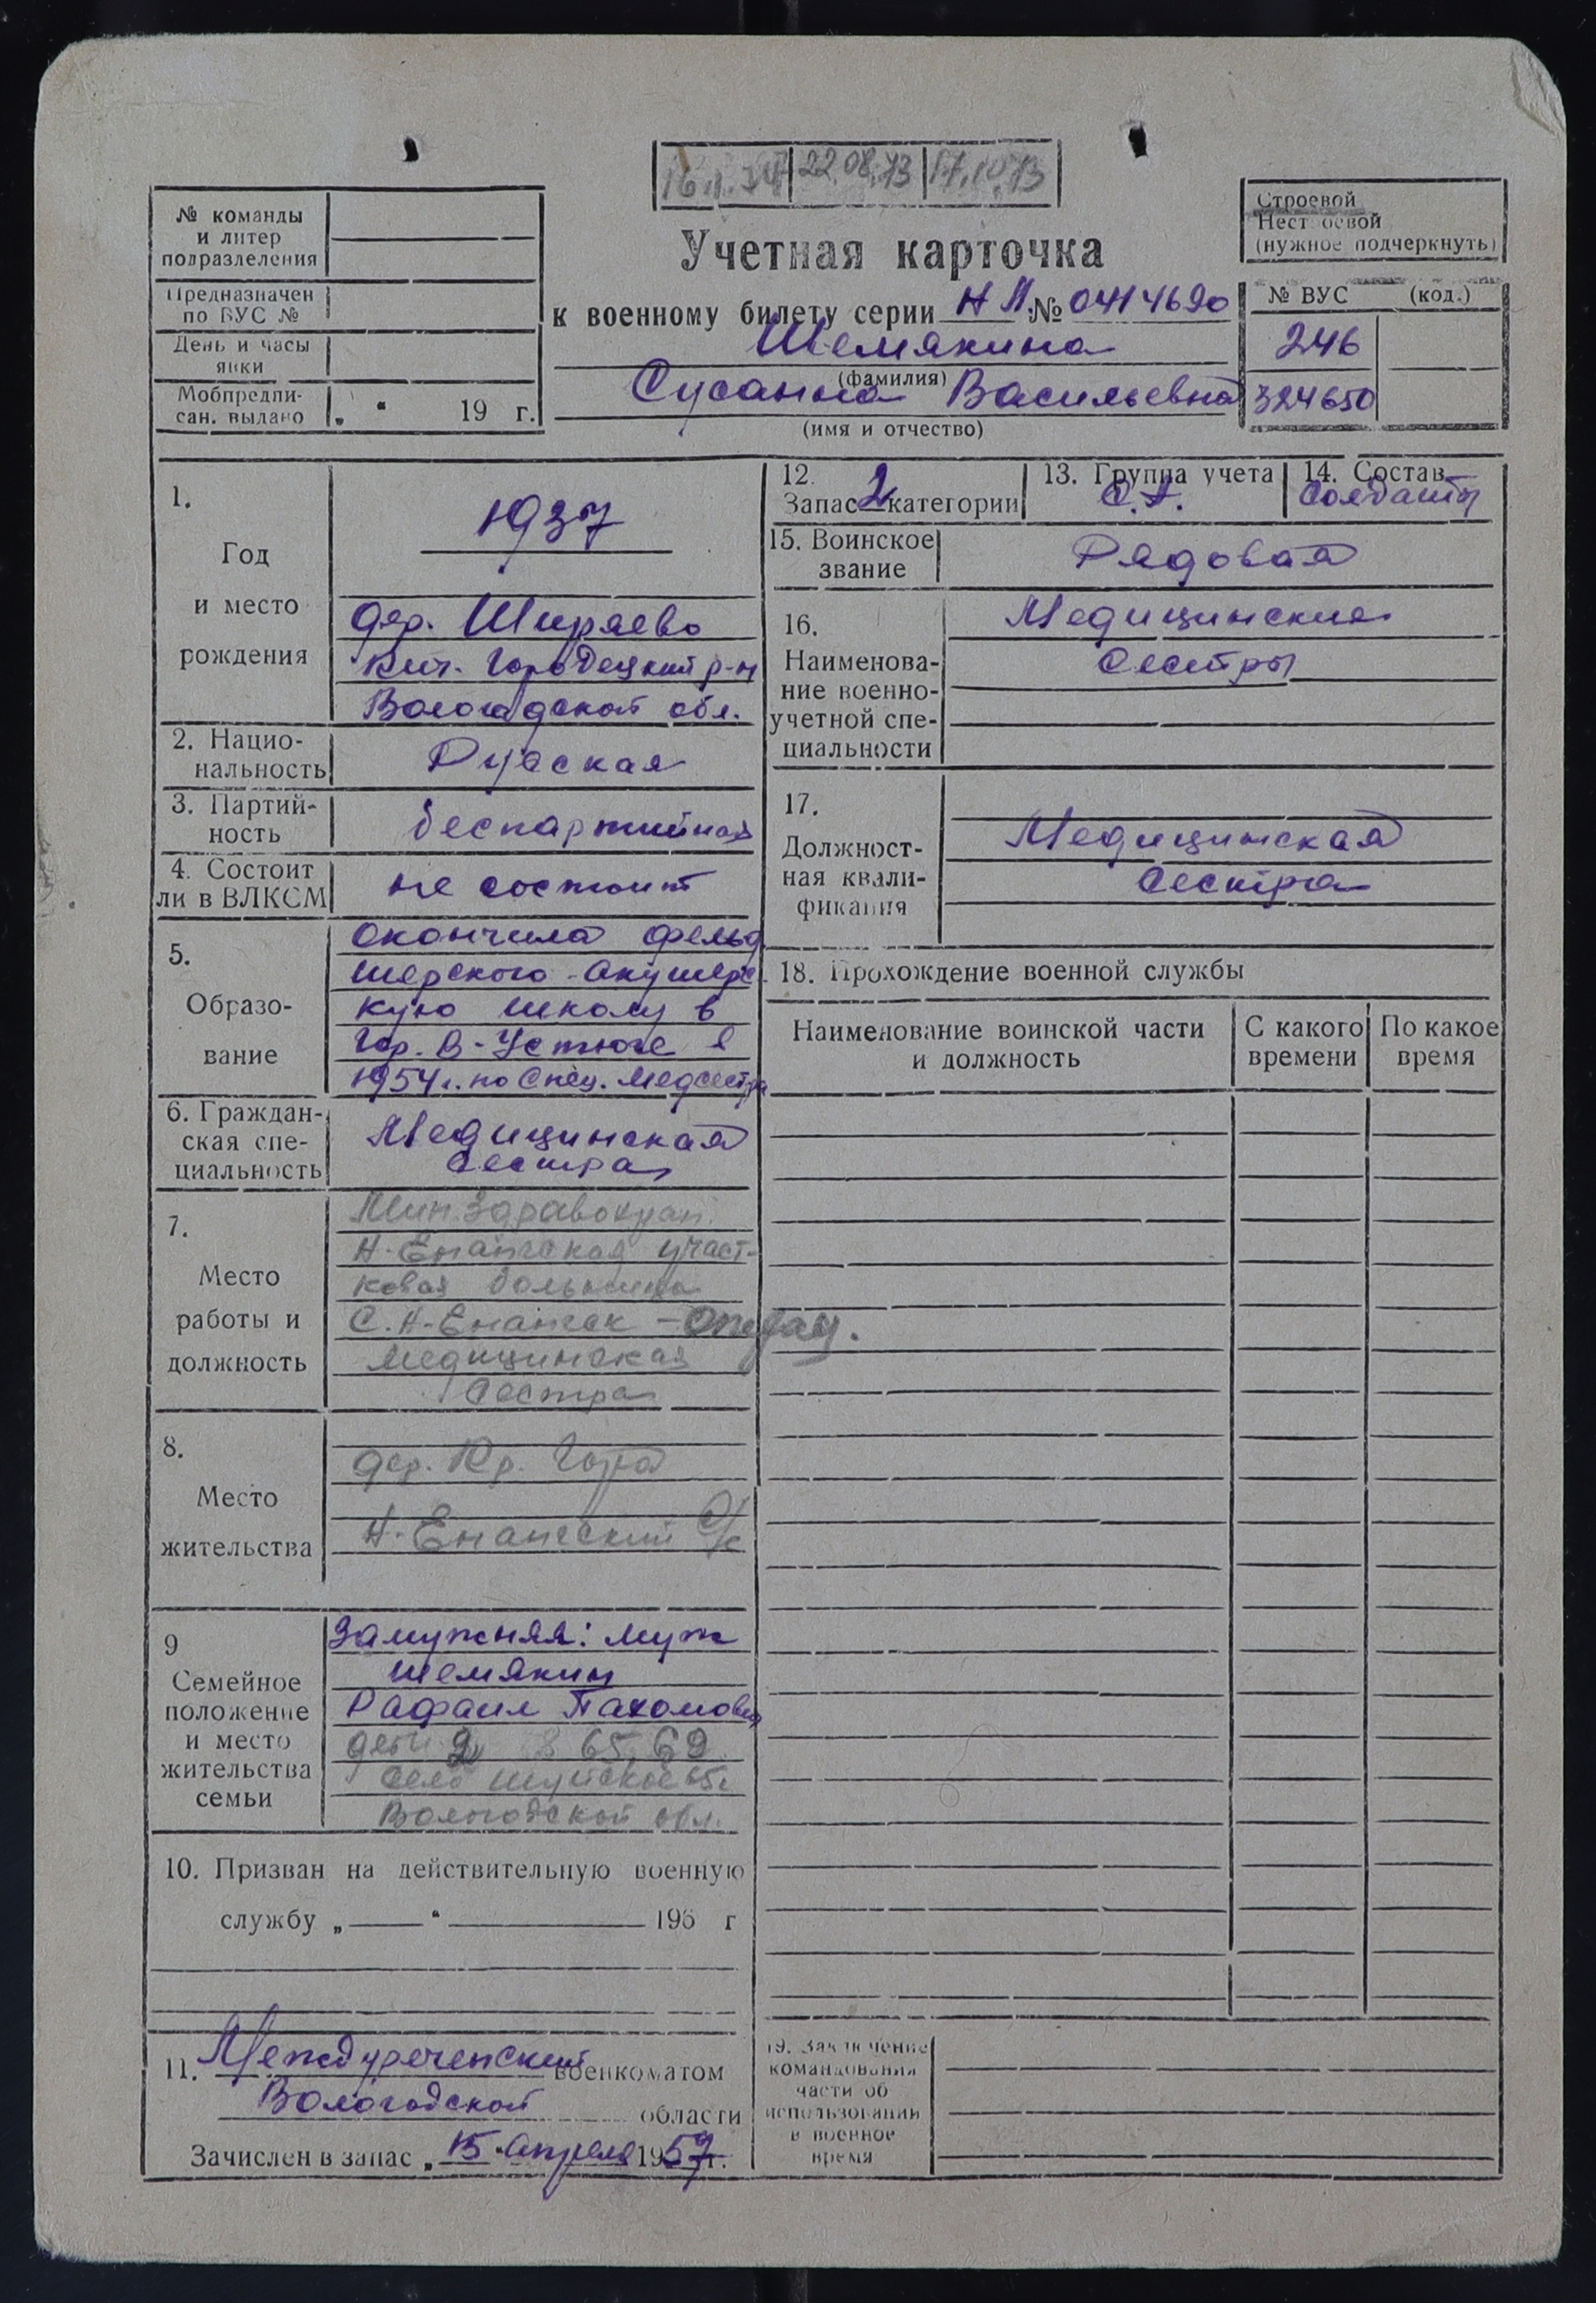 22.08.73 17.10.73
№ команды
и литер
подразделения
Предназначен
по ВУС №
День и часы
явки
Мобпредпи-
сан. выдано „ “ 19 г.
Учетная карточка
к военному билету серии НП № 0414690
Шемякина
(фамилия)
Сусанна Васильевна
(имя и отчество)
Строевой
Нестроевой
(нужное подчеркнуть)
№ ВУС (код.)
246
324650
1.
Год
и место
рождения
1937
дер. Ширяево
Кич. Городецкий р-н
Вологодской обл.
2. Нацио-
нальность
Русская
3. Партий-
ность
беспартийная
4. Состоит
ли в ВЛКСМ
не состоит
5.
Образо-
вание
Окончила фельд
шерского-Акушерс
кую школу в
гор. В-Устюге в
1954 г. по спец. Медсестра
6. Граждан-
ская спе-
циальность
Медицинская
сестра
7.
Место
работы и
должность
Мин.Здравохран.
Н-Енангская участ-
ковая больница
С. Н-Енангск
Медицинская
Сестра
8.
Место
жительства
дер. Кр. Гора
Н-Енангский С/с
9
Семейное
положение
и место
жительства
семьи
Замужняя: муж
Шемякин
Рафаил Пахомович
дети 2 65, 69
село Шуйское
Вологодской обл.
10. Призван на действительную военную
службу „ “ 195 г
11. Междуреченский военкоматом
Вологодской области
Зачислен в запас „15“ апреля 1957 г.
12.
Запас 2 категории
13. Группа учета
С.А.
14. Состав
Солдаты
15. Воинское
звание
Рядовая
16.
Наименова-
ние военно-
учетной спе-
циальности
Медицинские
Сестры
17.
Должност-
ная квали-
фикация
Медицинская
Сестра
18. Прохождение военной службы
Наименование воинской части
и должность
С какого
времени
По какое
время
19. Заключение
командования
части об
использовании
в военное
время